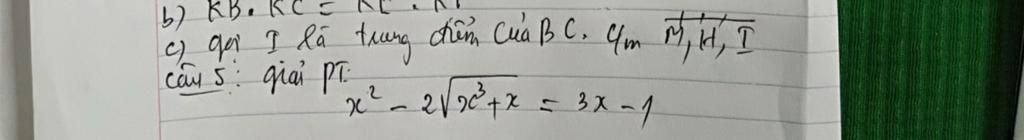 b) KB. KC = KE. KF
c) gọi I là trung điểm của BC. c/m M, H, I
câu 5: giải PT:
x² - 2√(x³+x) = 3x - 1